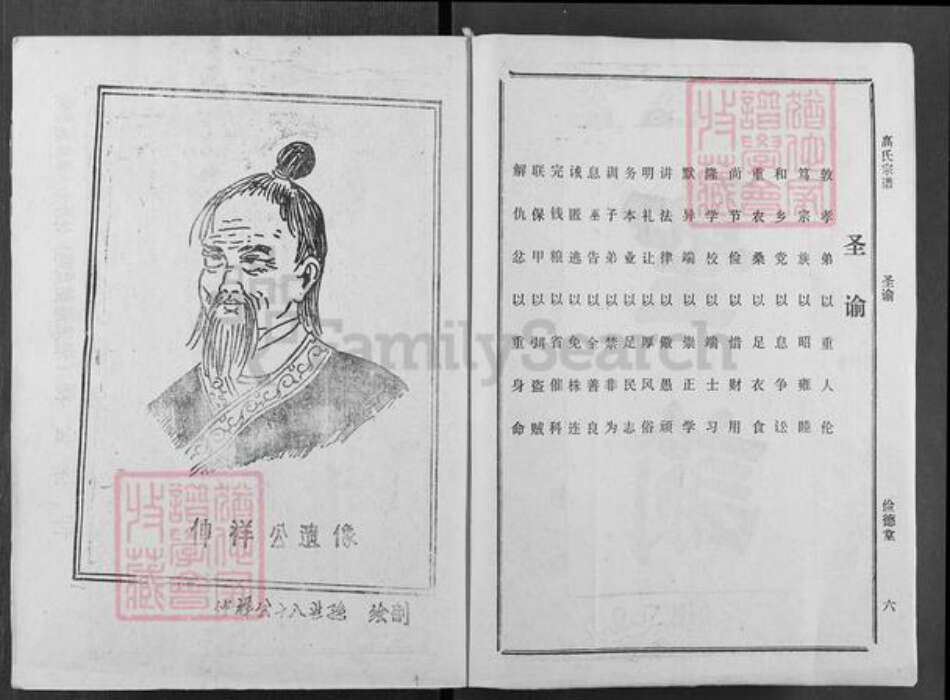 高氏宗谱
圣谕
俭德堂
六
圣谕
敦孝弟以重人伦
笃宗族以昭雍睦
和乡党以息争讼
重农桑以足衣食
尚节俭以惜财用
隆学校以端士习
默异端以崇正学
讲法律以儆愚顽
明礼让以厚风俗
务本业以足民志
训子弟以禁非为
息巫告以全善良
诫匿逃以免株连
完钱粮以省催科
联保甲以弭盗贼
解仇忿以重身命
猶他家
譜學會
收藏
仲祥公遗像
仲祥公十八世孙 绘制
猶他家
譜學會
收藏
FamilySearch